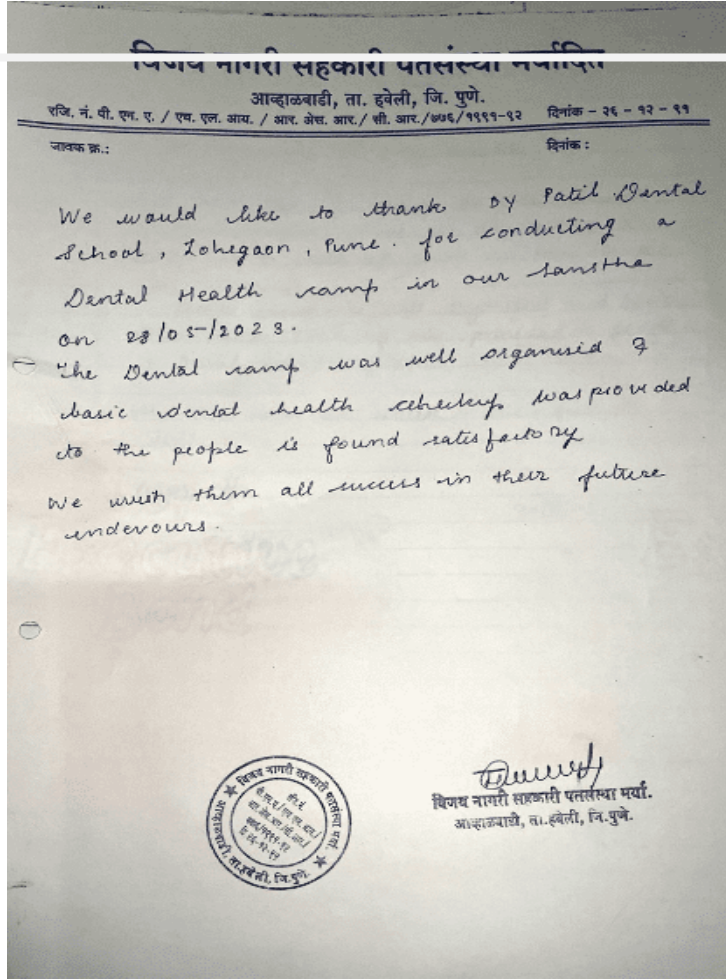 विजय नागरी सहकारी पतसंस्था मर्यादित
आव्हाळवाडी, ता. हवेली, जि. पुणे.
रजि. नं. पी. एन. ए. / एच. एल. आय. / आर. ओस. आर./ सी. आर./७७६/१९९१-९२ दिनांक - २६ - १२ - ९१
जावक क्र.: दिनांक :
We would like to thank DY Patil Dental
School, Lohegaon, Pune. for conducting a
Dental Health camp in our Sanstha
on 28/05/2023.
The Dental camp was well organised &
basic dental health checkup was provided
to the people is found satisfactory
We wish them all success in their future
endevours.
विजय नागरी सहकारी पतसंस्था मर्या.
आव्हाळवाडी, ता.हवेली, जि.पुणे.
विजय नागरी सहकारी पतसंस्था मर्या.
आव्हाळवाडी, ता.हवेली, जि.पुणे.